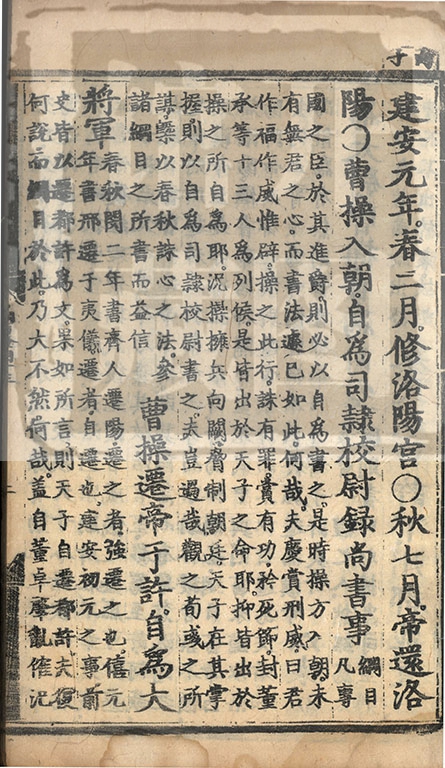 建安元年。春二月。修洛陽宮〇秋七月。帝還洛
陽〇曹操入朝。自為司隸校尉錄尚書事
綱目
凡專
國之臣。於其進爵。則必以自為書之。是時操方入朝。未
有無君之心。而書法遽已如此。何哉。夫慶賞刑威曰君
作福作威惟辟。操之此行。誅有罪賞有功。矜死節。封董
承等十三人為列侯。是皆出於天子之命耶。抑皆出於
操之所自為耶。況操擁兵向闕。脅制朝廷。天子在其掌
握。則以自為司隸校尉書之。夫豈過哉。觀之荀彧之所
謀。槩以春秋誅心之法。參
諸綱目之所書而益信
曹操遷帝于許。自為大
將軍
春秋閔二年書齊人遷陽。遷之者。強遷之也。僖元
年書邢遷于夷儀。遷者。自遷也。建安初元之事。前
史皆以遷都許為文。果如所言。則天子自遷都許。夫復
何說。而綱目於此乃大不然。何哉。蓋自董卓肇亂。傕汜